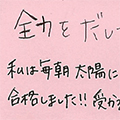 全力をだし
私は毎朝太陽に
合格しました!!受か